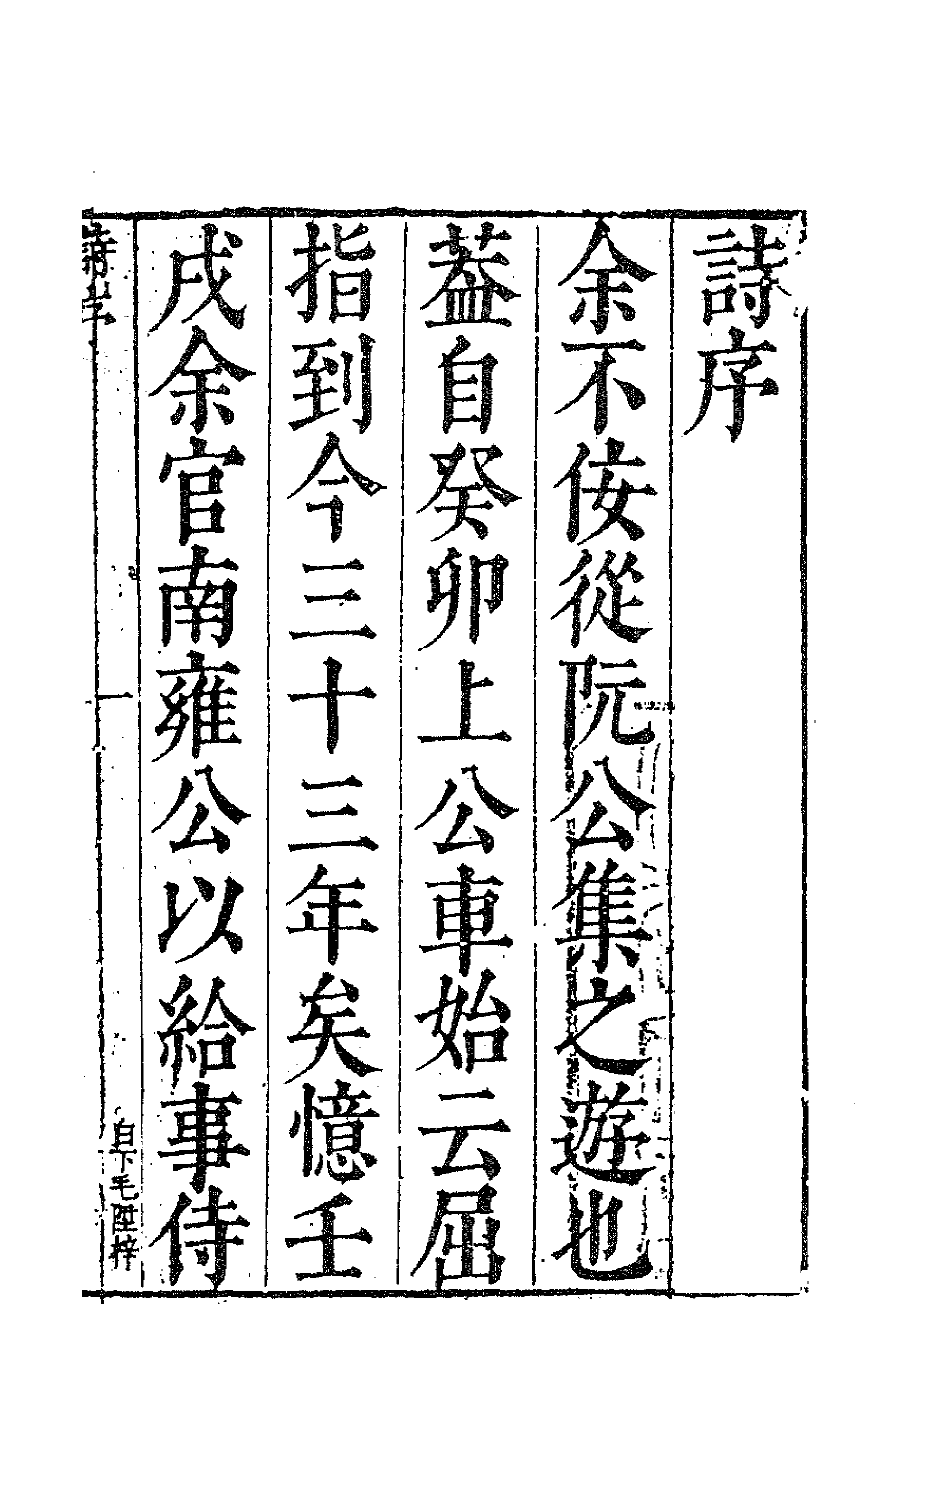 詩序
余不佞從阮公集之遊也
葢自癸卯上公車始云屈
指到今三十三年矣憶壬
戌余官南雍公以給事侍
詩序
一
白下毛陞梓